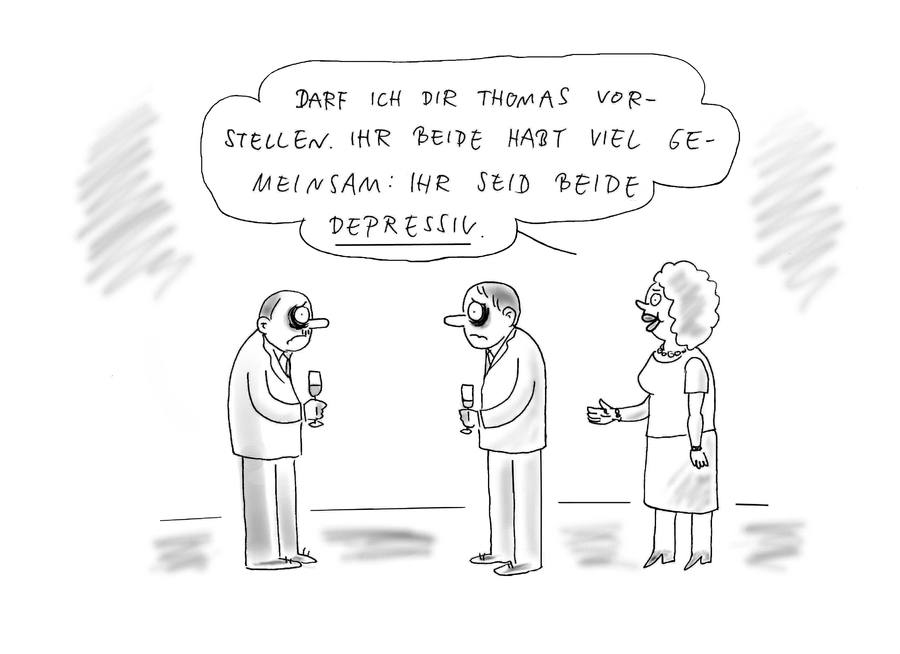 DARF ICH DIR THOMAS VOR-
STELLEN. IHR BEIDE HABT VIEL GE-
MEINSAM: IHR SEID BEIDE
DEPRESSIV.